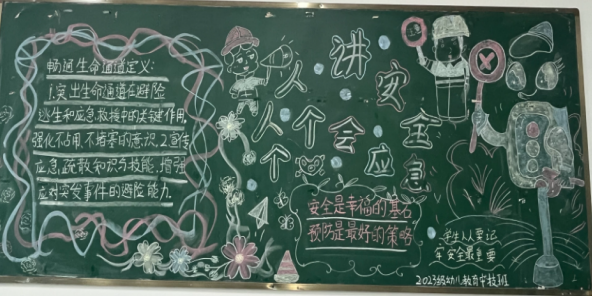 畅通生命通道定义:
1.突出生命通道在避险
逃生和应急救援中的关键作用,
强化不占用,不堵塞的意识,2.宣传
应急,疏散知识与技能,增强
应对突发事件的避险能力.
人人讲安全
个个会应急
安全是幸福的基石
预防是最好的策略
学生人人要记
牢安全最重要
2023级幼儿教育中技班